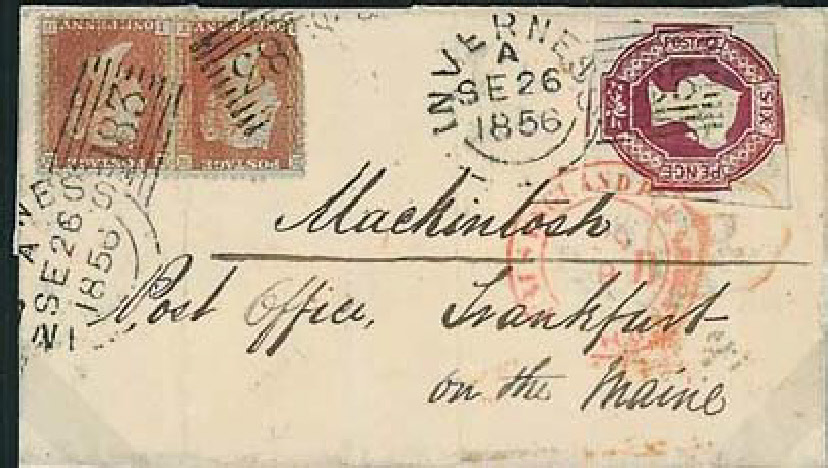 POSTAGE
ONE PENNY
183
POSTAGE
INVERNESS
A
SE 26
1856
POSTAGE
SIX
PENCE
INVERNESS
A
SE 26
1856
Mackintosh
Post Office, Frankfurt
on the Maine